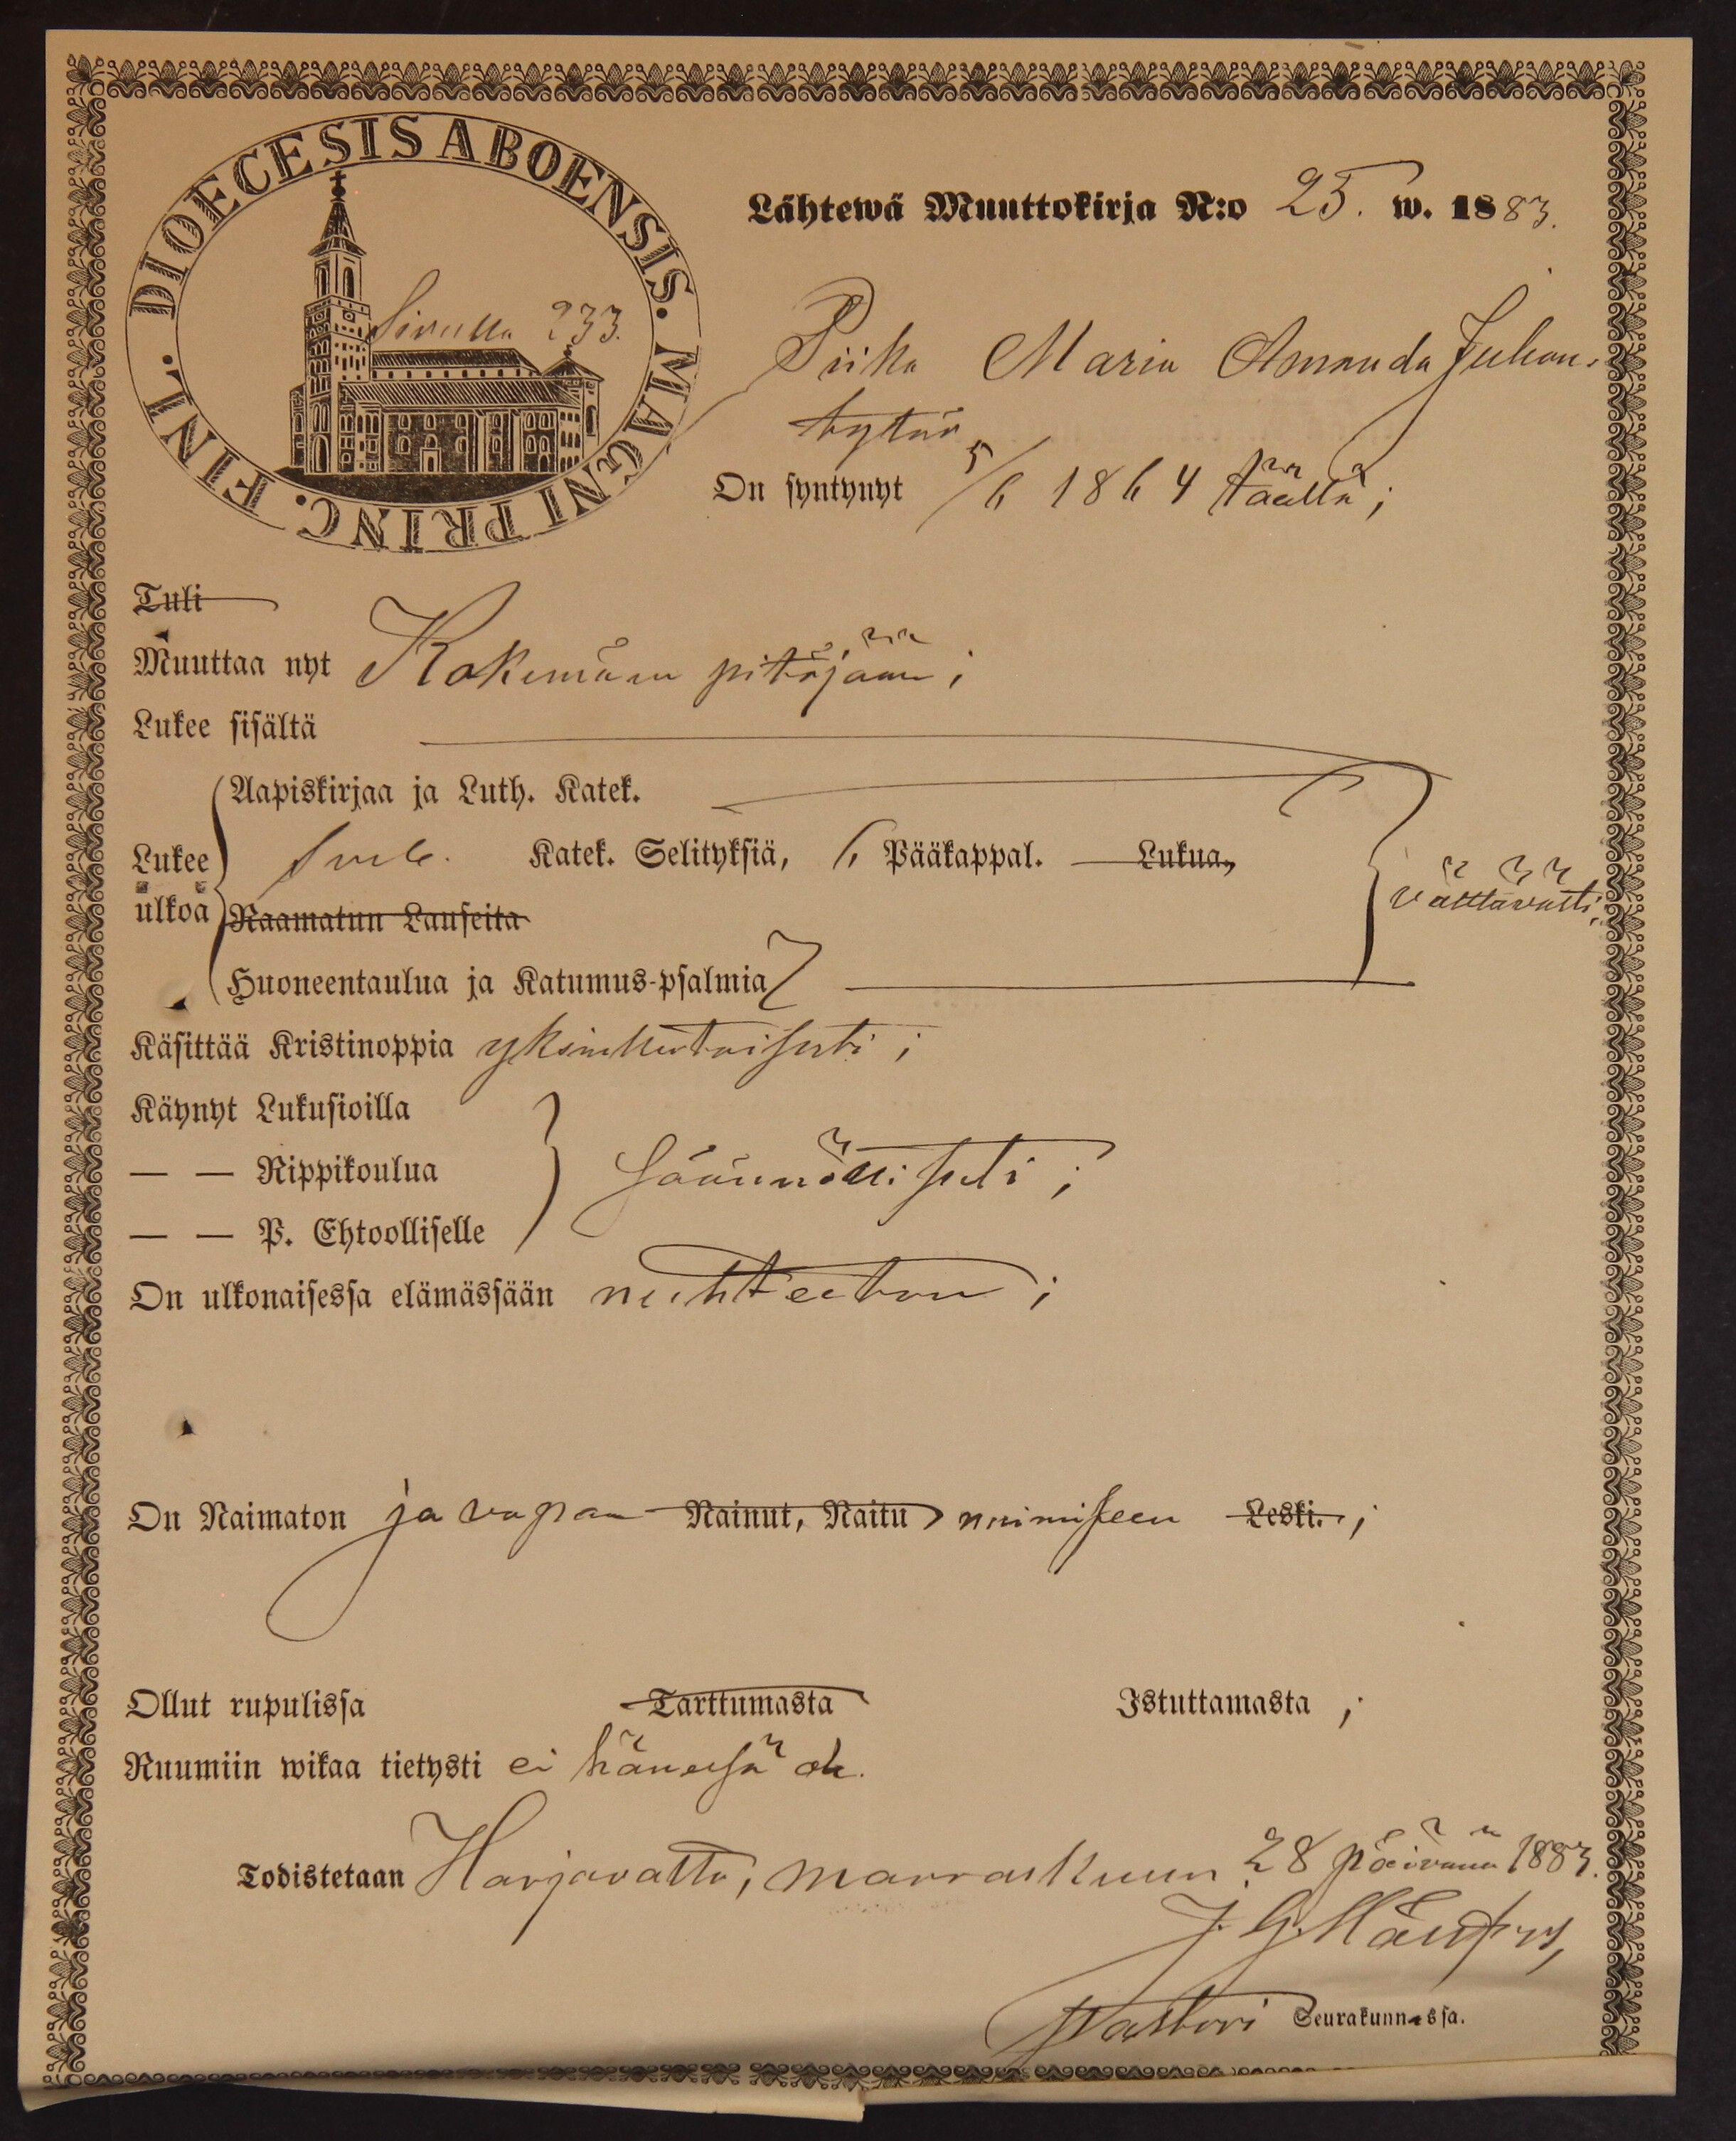 DIOECESIS ABOENSIS. MAGNI PRINC. FINL.
Sivulla 233.
Lähtewä Muuttokirja N:o 25. w. 1883.
Piika Maria Amanda Juhan-
tytär
On syntynyt 5/6 1864 täällä;
Tuli
Muuttaa nyt Kokemäen pitäjään;
Lukee sisältä
Aapiskirjaa ja Luth. Katek.
Lukee ulkoa
Katek. Selityksiä, 6 Pääkappal. Lukua,
välttävästi;
Raamatun Lauseita
Huoneentaulua ja Katumus-psalmia
Käsittää Kristinoppia yksinkertaisesti;
Käynyt Lukusioilla
— — Rippikoulua
säännöllisesti;
— — P. Ehtoolliselle
On ulkonaisessa elämässään nuhteeton;
On Naimaton ja vapaa Nainut, Naitu naimiseen Leski.;
Ollut rupulissa Tarttumasta Istuttamasta;
Ruumiin wikaa tietysti ei hänessä ole.
Todistetaan Harjavalta, marraskuun 28 päivänä 1883.
J. G.
Pastori Seurakunnassa.